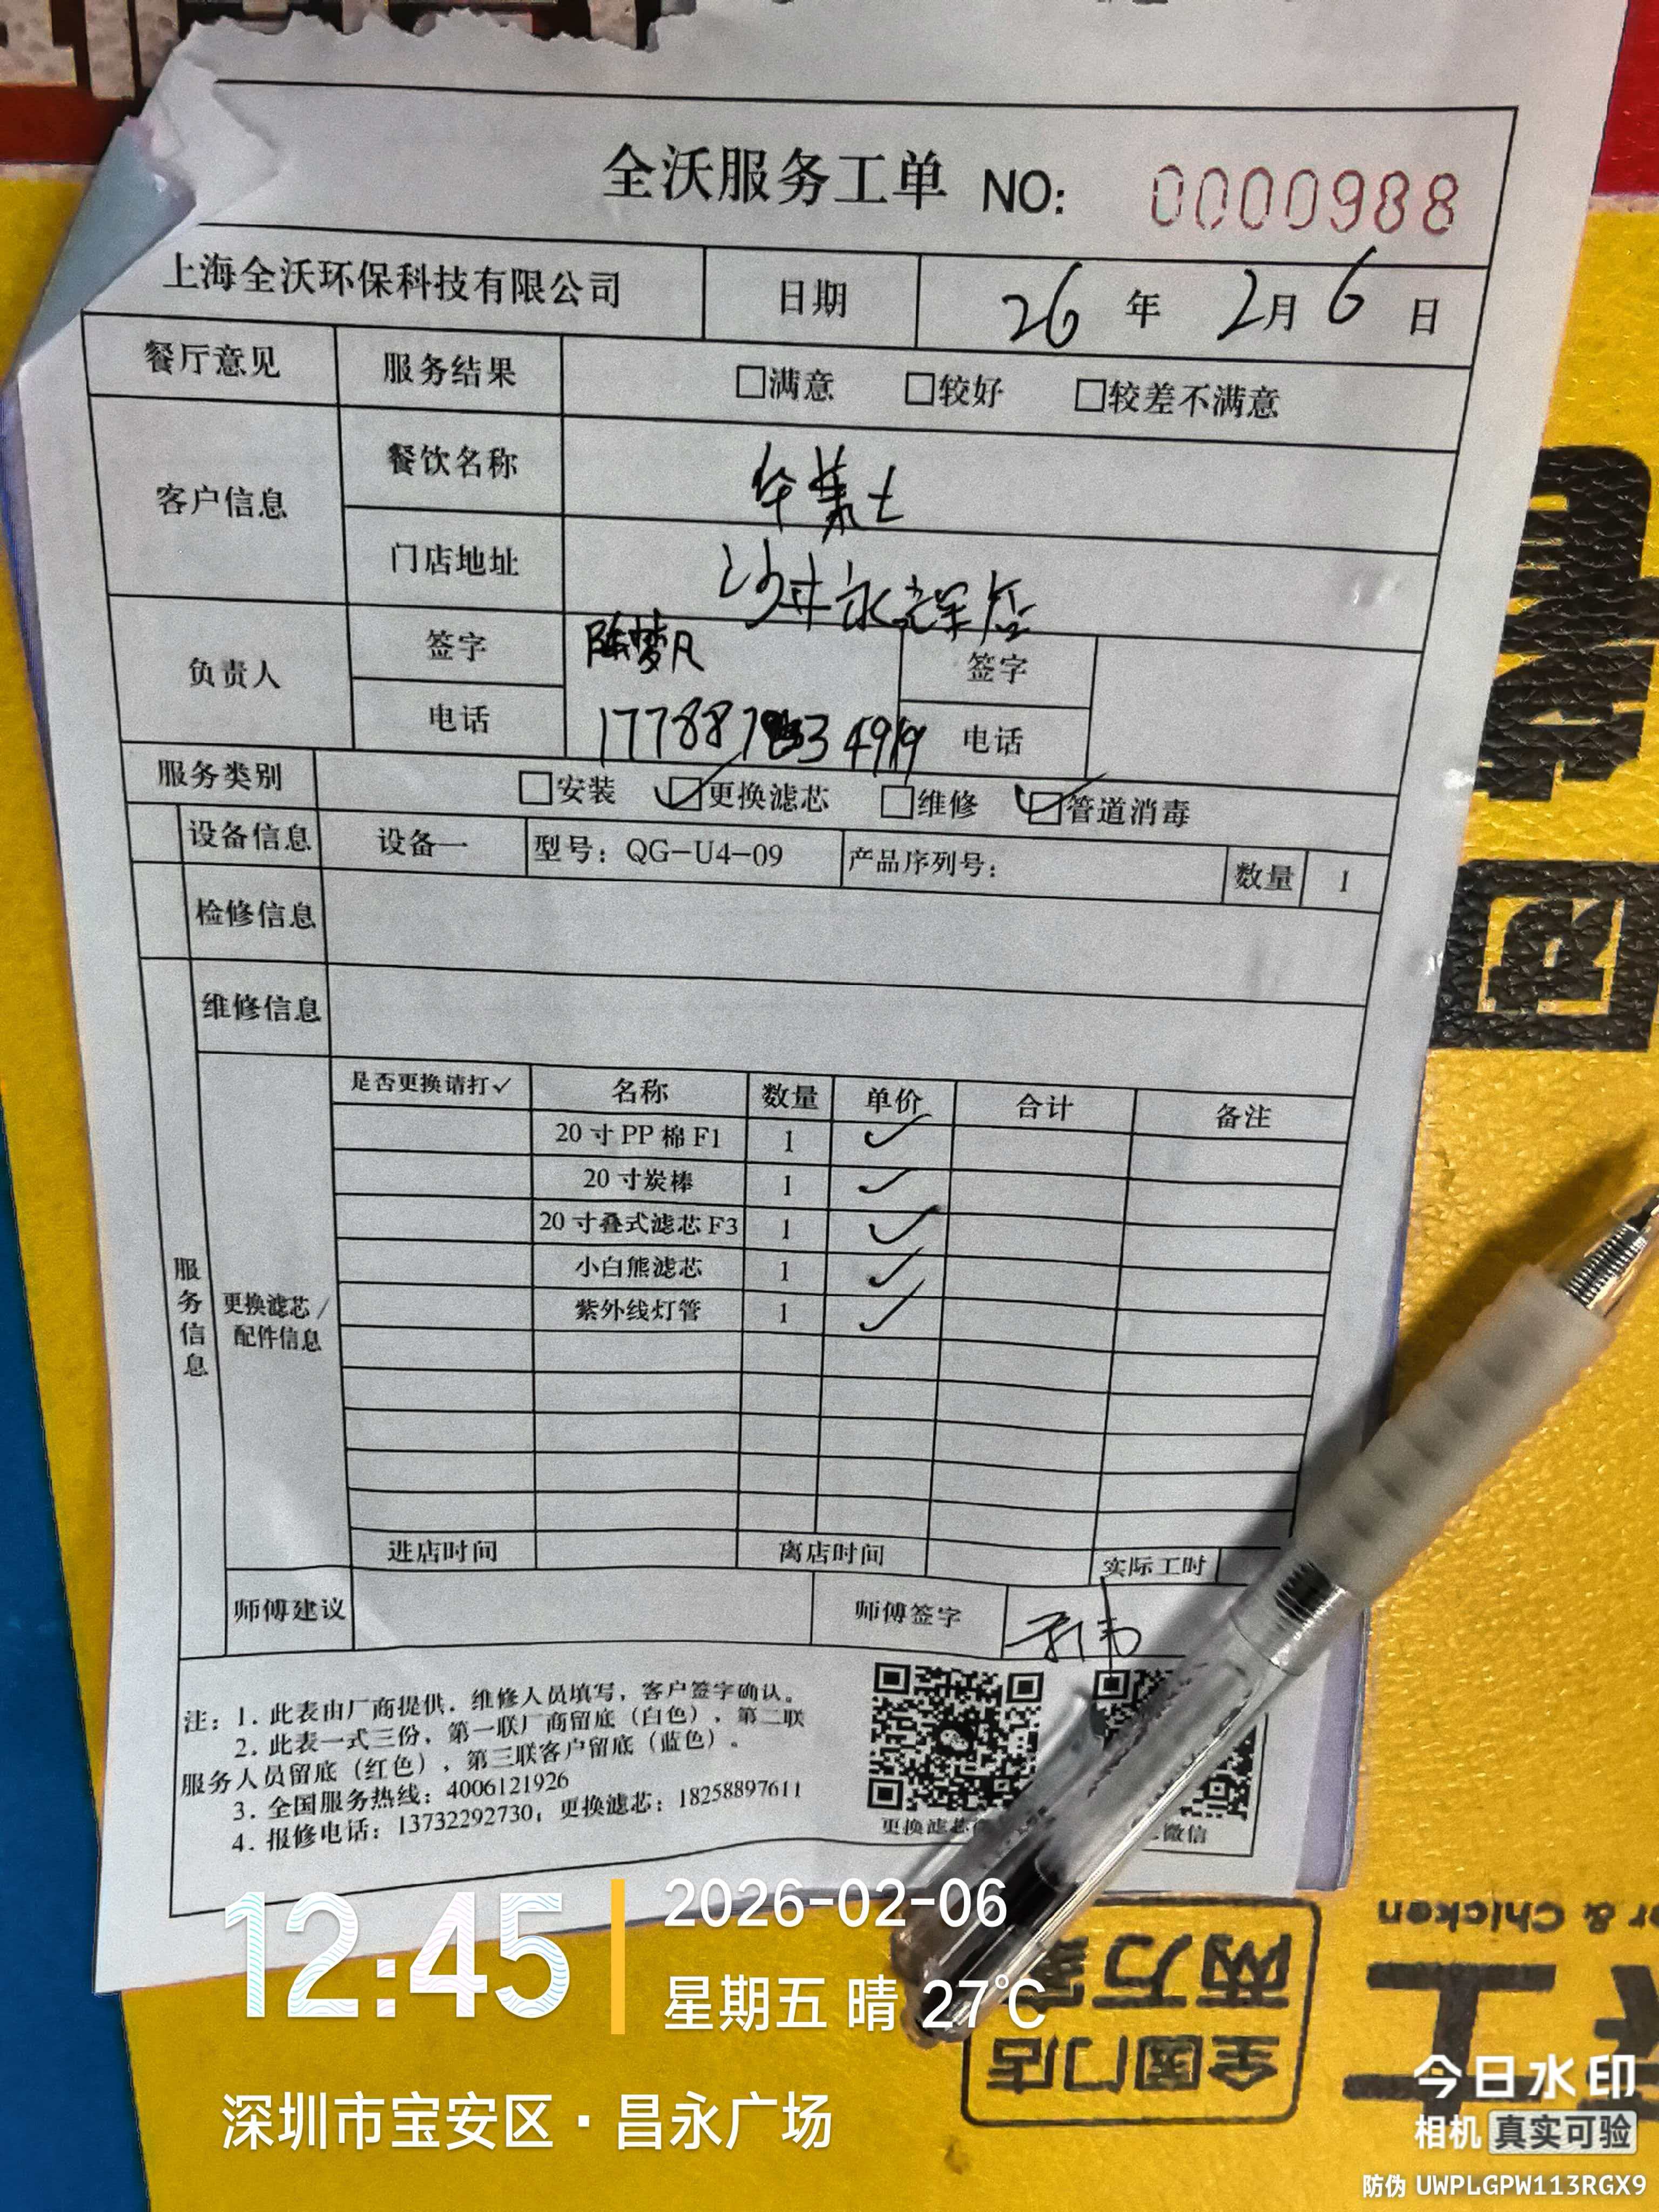 全沃服务工单 NO: 0000988
上海全沃环保科技有限公司 日期 26 年 2月 6 日
餐厅意见 服务结果 □满意 □较好 □较差不满意
客户信息 餐饮名称 华莱士
门店地址 沙井永店
负责人 签字 陈梦凡 签字
电话 电话
服务类别 □安装 ☑更换滤芯 □维修 ☑管道消毒
设备信息 设备一 型号：QG-U4-09 产品序列号： 数量 1
检修信息
维修信息
服务信息
更换滤芯/配件信息
是否更换请打✓ 名称 数量 单价 合计 备注
20寸PP棉F1 1 ✓
20寸炭棒 1 ✓
20寸叠式滤芯F3 1 ✓
小白熊滤芯 1 ✓
紫外线灯管 1 ✓
进店时间 离店时间 实际工时
师傅建议 师傅签字
注：1. 此表由厂商提供，维修人员填写，客户签字确认。
2. 此表一式三份，第一联厂商留底（白色），第二联
服务人员留底（红色），第三联客户留底（蓝色）。
3. 全国服务热线：4006121926
4. 报修电话：13732292730；更换滤芯：18258897611
更换滤芯 微信
12:45 2026-02-06
星期五 晴 27℃
深圳市宝安区·昌永广场
& Chicken
全国门店
两万
今日水印
相机 真实可验
防伪 UWPLGPW113RGX9